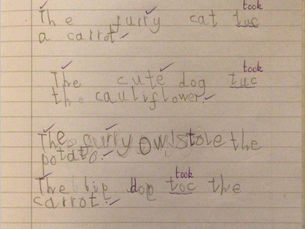 took
The furry cat tuc
a carrot.
took
The cute dog tuc
the cauliflower.
The furry owl stole the
potato.
took
The big dog toc the
carrot.